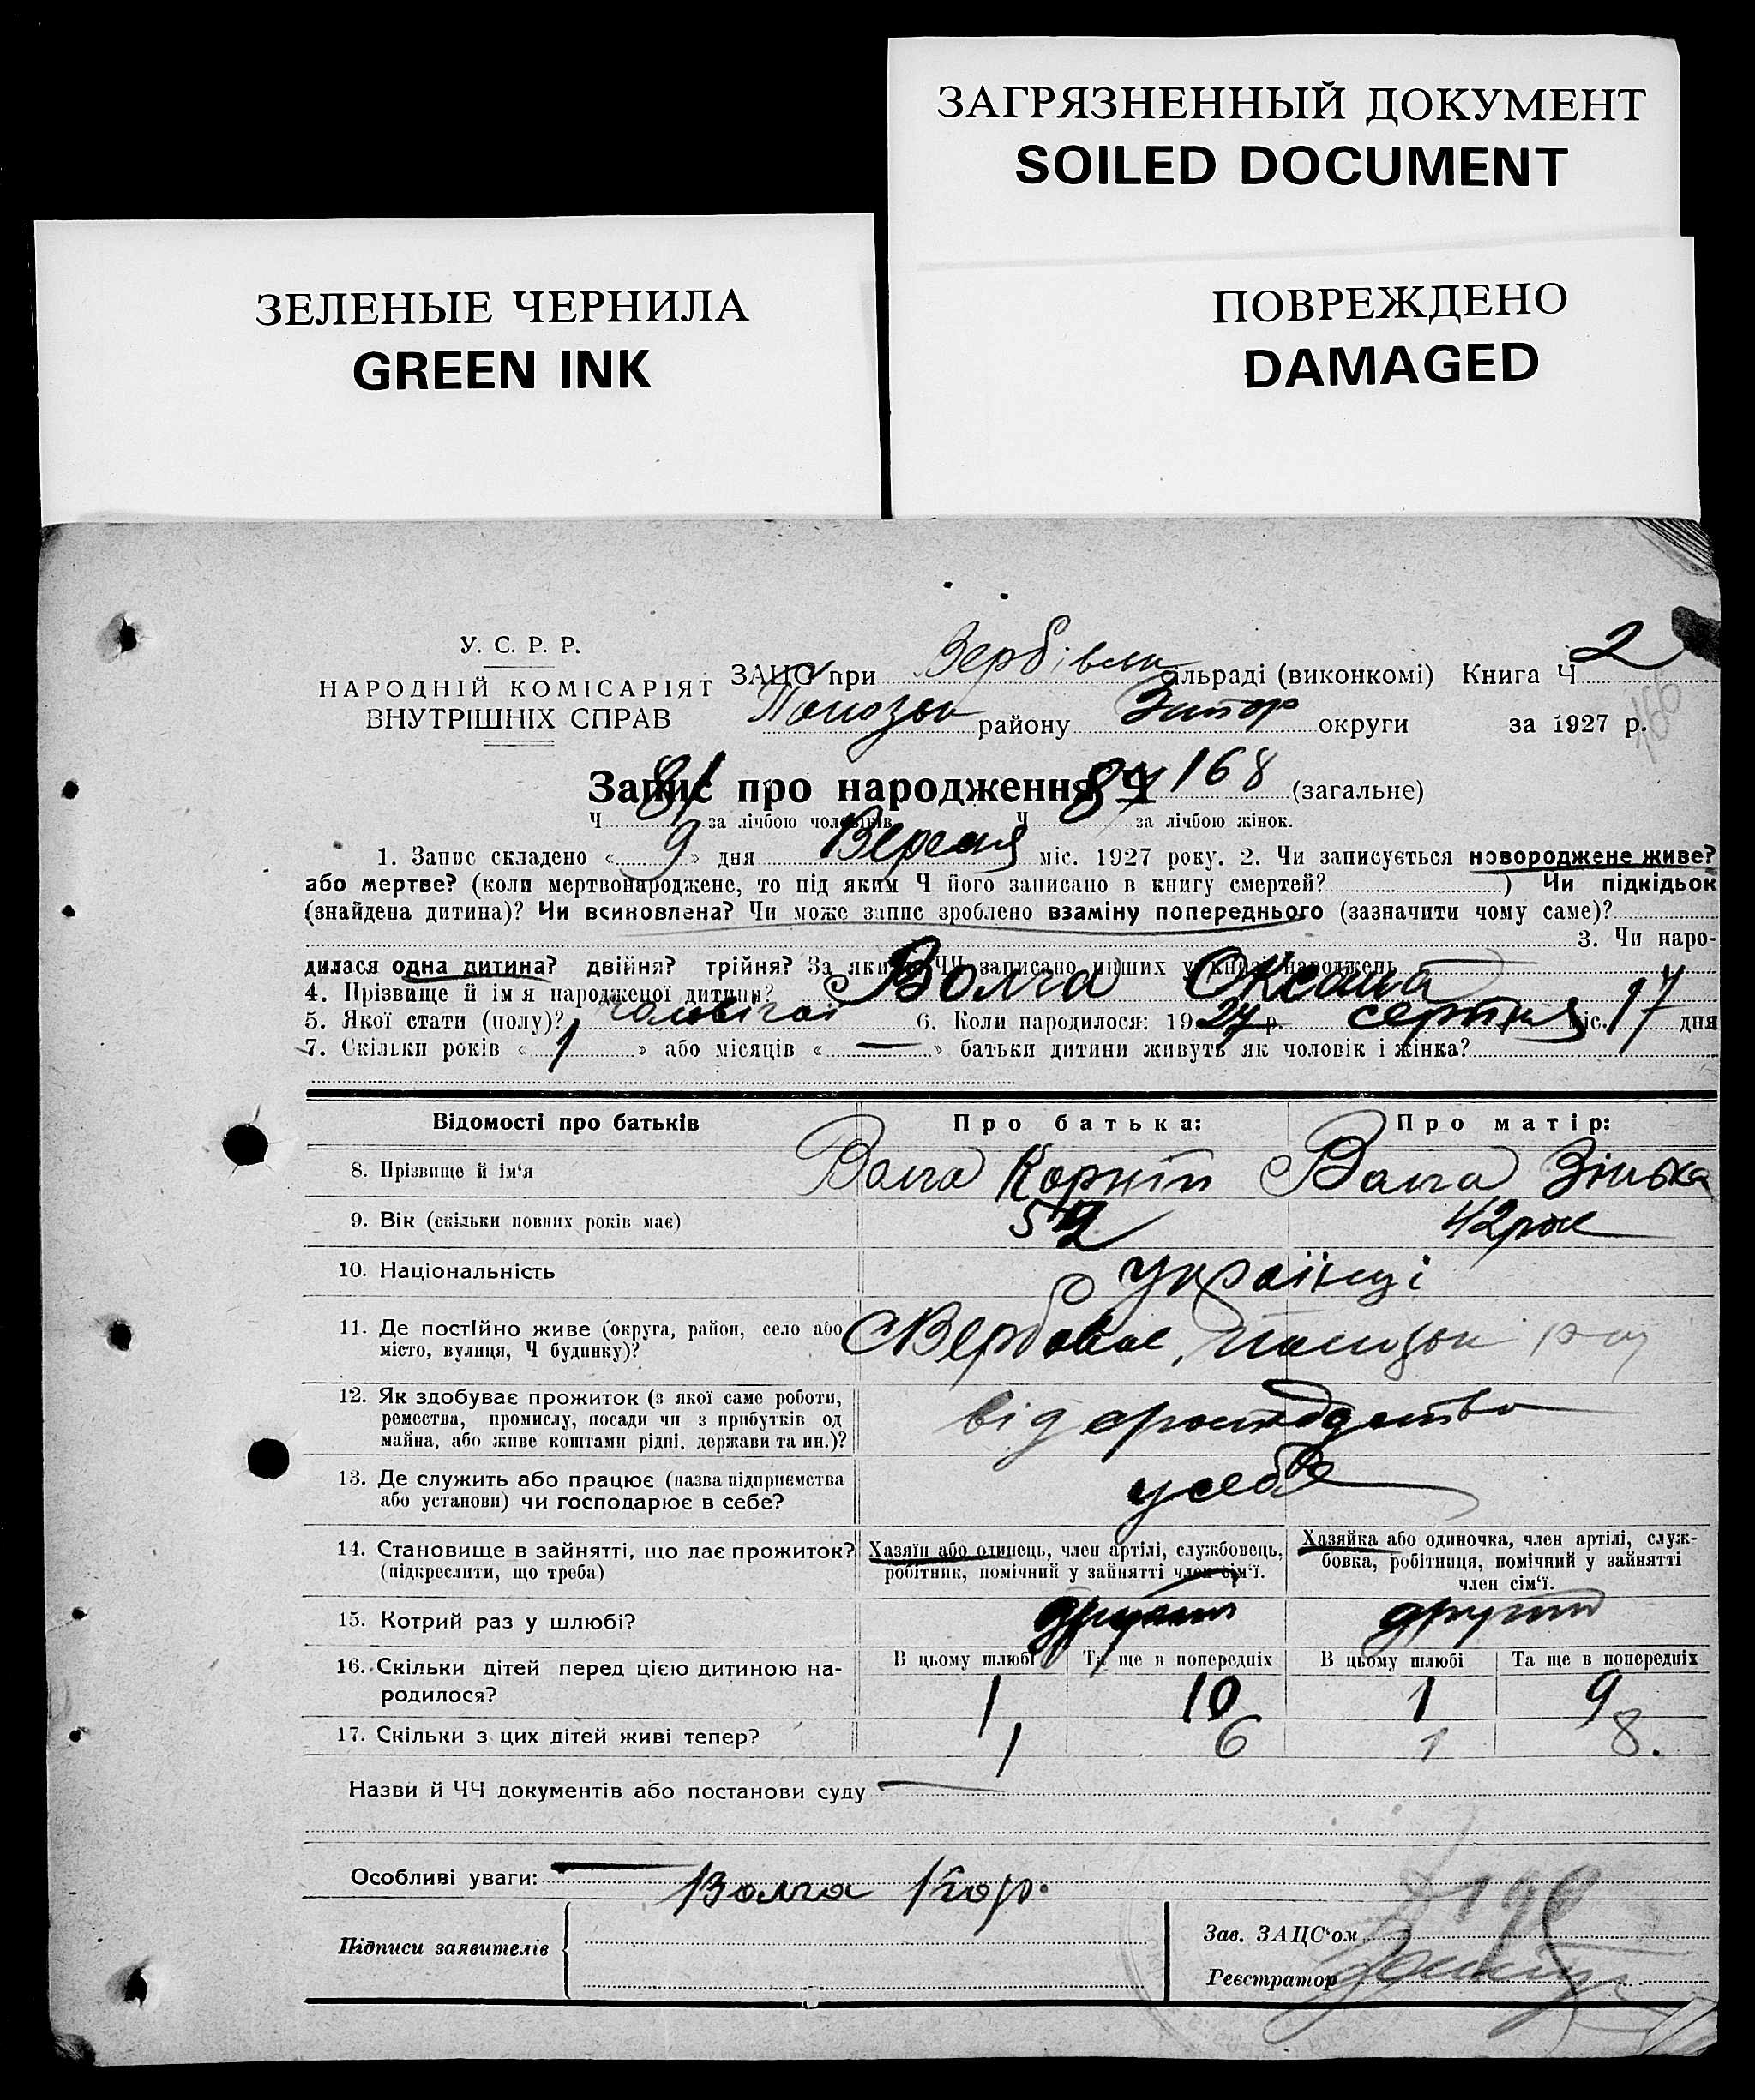 ЗАГРЯЗНЕННЫЙ ДОКУМЕНТ
SOILED DOCUMENT
ЗЕЛЕНЫЕ ЧЕРНИЛА
GREEN INK
ПОВРЕЖДЕНО
DAMAGED
У. С. Р. Р.
НАРОДНІЙ КОМІСАРІЯТ
ВНУТРІШНІХ СПРАВ
ЗАЦС при сільраді (виконкомі) Книга Ч 2
району Запор округи за 1927 р.
Запис про народження Ч 168 (загальне)
Ч 81 за лічбою чоловіків Ч 87 за лічбою жінок.
1. Запис складено « 9 » дня Вересня міс. 1927 року. 2. Чи записується новороджене живе?
або мертве? (коли мертвонароджене, то під яким Ч його записано в книгу смертей? ) Чи підкідьок
(знайдена дитина)? Чи всиновлена? Чи може запис зроблено взаміну попереднього (зазначити чому саме)?
3. Чи наро-
дилася одна дитина? двійня? трійня? За якими ЧЧ записано инших у книзі народжень
4. Прізвище й ім'я народженої дитини? Волга
5. Якої стати (полу)? 6. Коли народилося: 1927 р. серпня міс. 17 дня
7. Скільки років « 1 » або місяців « — » батьки дитини живуть як чоловік і жінка?
Відомості про батьків Про батька: Про матір:
8. Прізвище й ім'я Волга Корній Волга Зінька
9. Вік (скільки повних років має) 52 42 рок
10. Національність українці
11. Де постійно живе (округа, район, село або
місто, вулиця, Ч будинку)?
12. Як здобуває прожиток (з якої саме роботи,
ремества, промислу, посади чи з прибутків од
майна, або живе коштами рідні, держави та ин.)?
від
13. Де служить або працює (назва підприємства
або установи) чи господарює в себе?
у себе
14. Становище в зайнятті, що дає прожиток?
(підкреслити, що треба)
Хазяїн або одинець, член артілі, службовець,
робітник, помічний у зайнятті член сім'ї.
Хазяйка або одиночка, член артілі, служ-
бовка, робітниця, помічний у зайнятті
член сім'ї.
15. Котрий раз у шлюбі? другий другий
16. Скільки дітей перед цією дитиною на-
родилося?
В цьому шлюбі Та ще в попередніх В цьому шлюбі Та ще в попередніх
1 10 1 9
17. Скільки з цих дітей живі тепер? 1 6 1 8.
Назви й ЧЧ документів або постанови суду —
Особливі уваги: —
Волга Кор.
Підписи заявителів
Зав. ЗАЦС'ом
Реєстратор